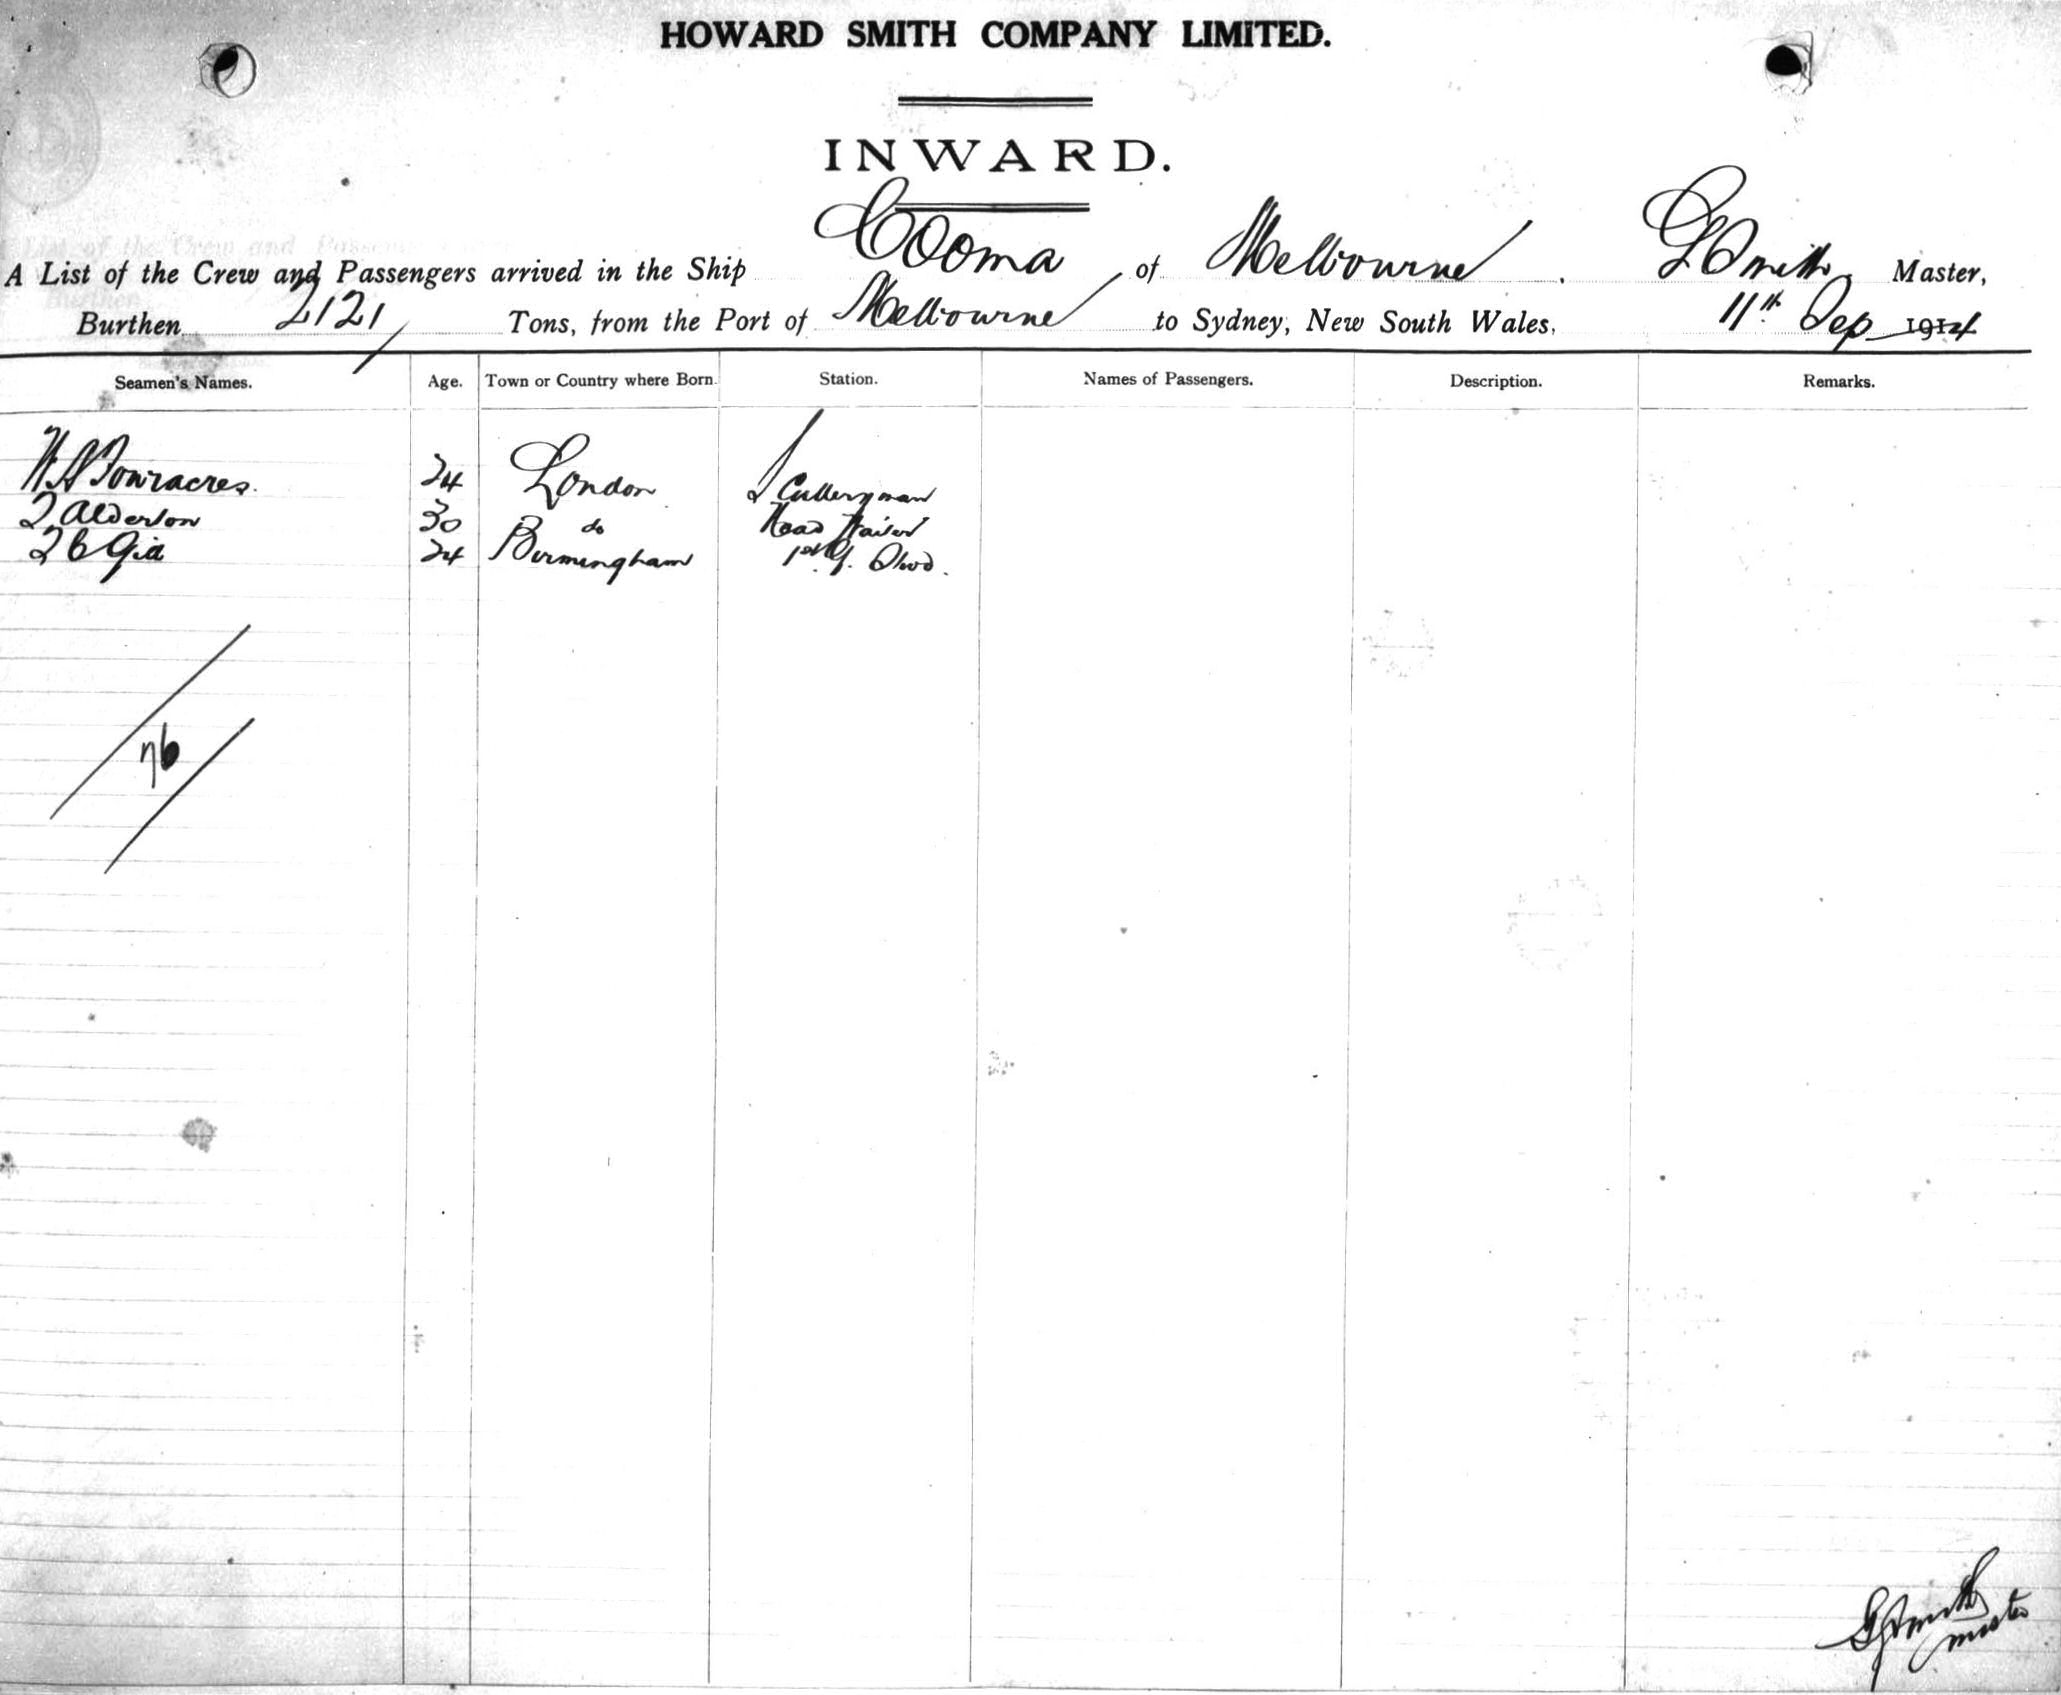 HOWARD SMITH COMPANY LIMITED.
INWARD.
A List of the Crew and Passengers arrived in the Ship Cooma of Melbourne. G Smith Master,
Burthen 2121 Tons, from the Port of Melbourne to Sydney, New South Wales, 11th Sep 1914
Seamen's Names. Age. Town or Country where Born. Station. Names of Passengers. Description. Remarks.
24 London Scullery man
Alderton 30 do Head Waiter
24 Birmingham 1st G. Stwd.
76
G Smith
master